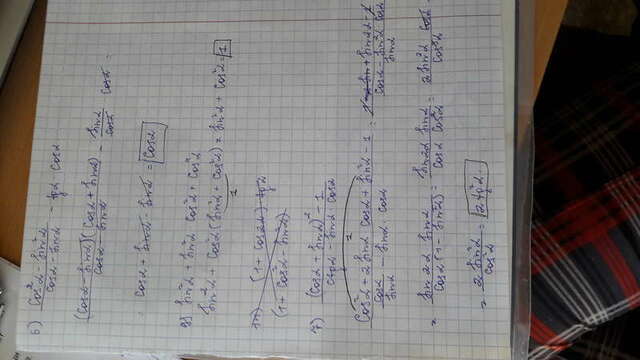 б) (cos²α - sin²α) / (cosα - sinα) - tgα cosα
((cosα - sinα)(cosα + sinα)) / (cosα - sinα) - (sinα / cosα) cosα =
cosα + sinα - sinα = cosα
sin²α + sin²α cos²α + cos⁴α
sin²α + cos²α (sin²α + cos²α) = sin²α + cos²α = 1
1
(1 + cos2α) tgα
(1 + cos²α - sin²α)
7) ((cosα + sinα)² - 1) / (ctgα - sinα cosα)
1
(cos²α + 2 sinα cosα + sin²α - 1) / (cosα / sinα - sinα cosα) = (1 + sin2α - 1) / ((cosα - sin²α cosα) / sinα)
= (sin2α sinα) / (cosα (1 - sin²α)) = (sin2α sinα) / (cosα cos²α) = (2 sin²α cosα) / (cos³α) =
= (2 sin²α) / (cos²α) = 2 tg²α